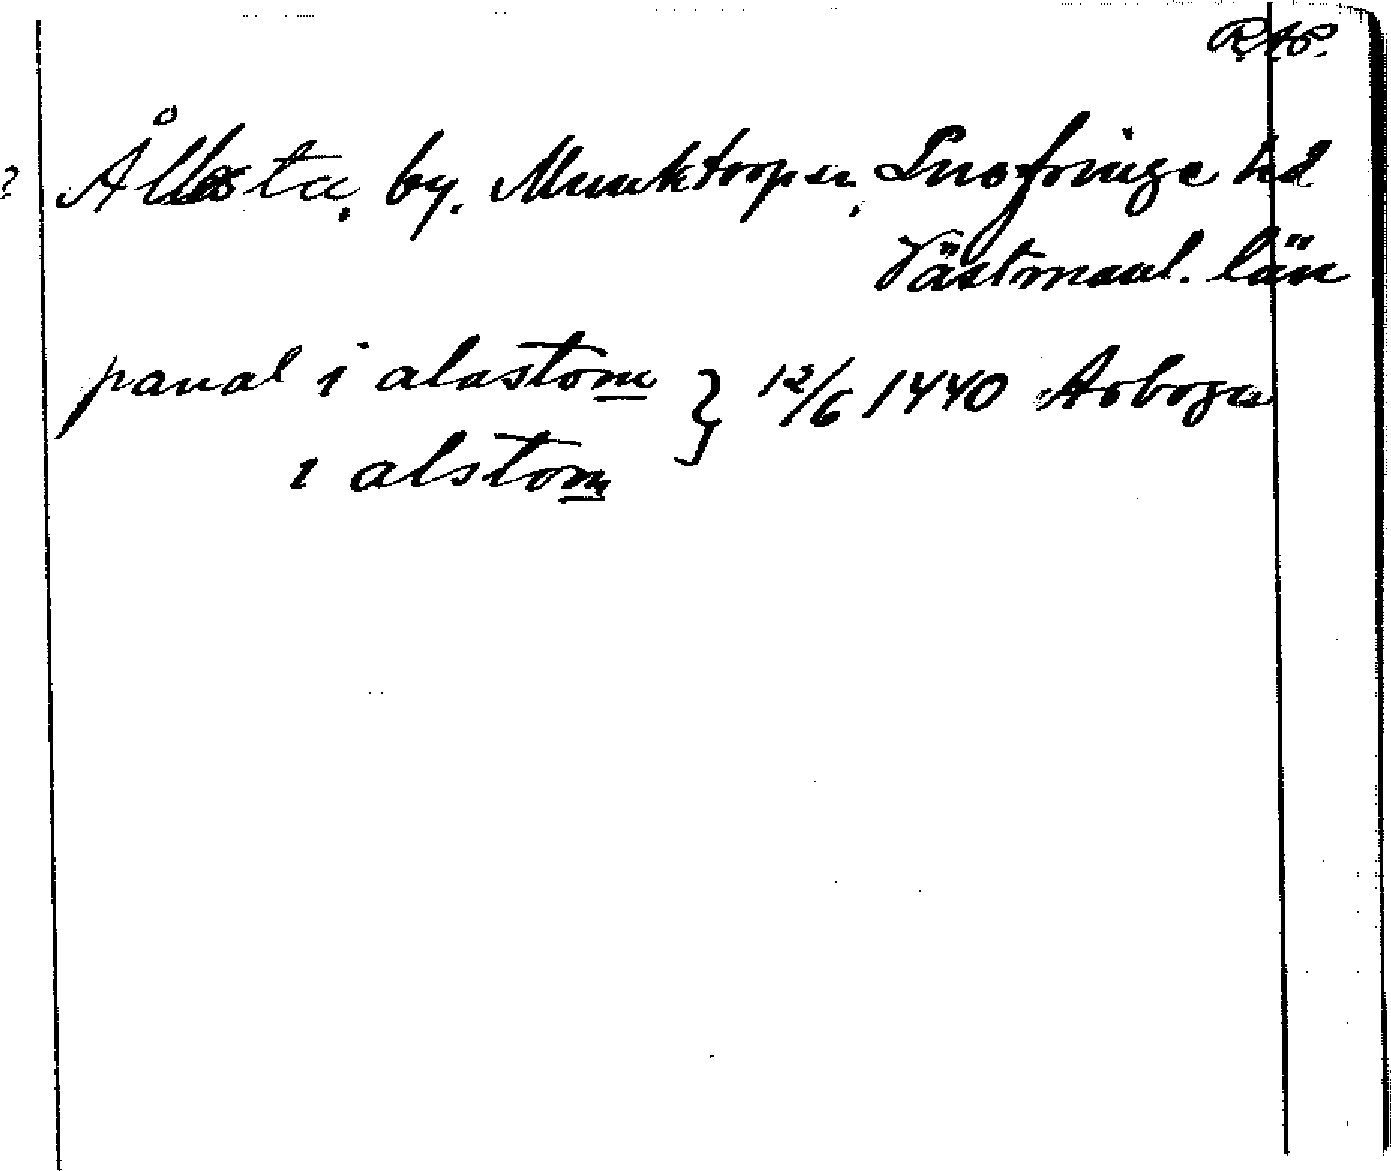 RAP.
? Ållesta, by. Munktorps sn, Snefringe hd
Västmanl. län
paual i alastom
i alstom } 12/6 1440 Arboga